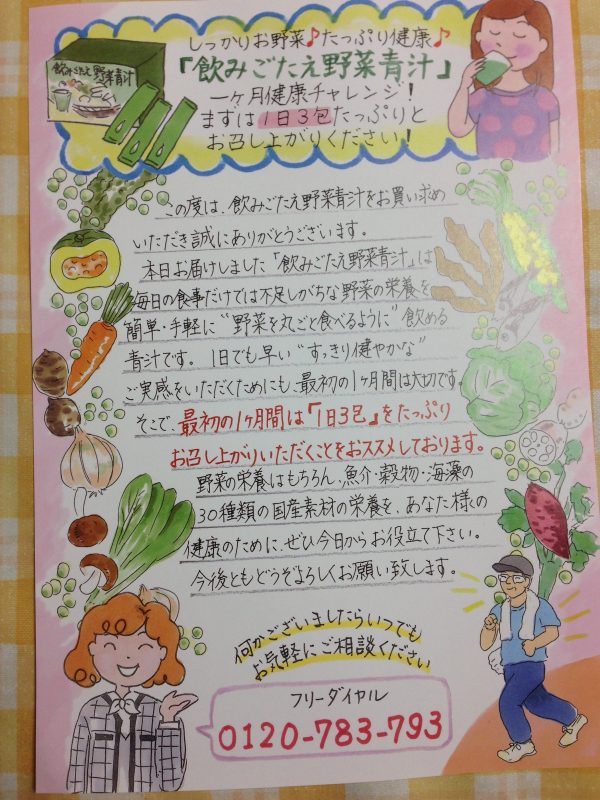 しっかりお野菜♪たっぷり健康♪
「飲みごたえ野菜青汁」
一ヶ月健康チャレンジ!
まずは1日3包たっぷりと
お召し上がりください!
飲みごたえ野菜青汁
この度は、飲みごたえ野菜青汁をお買い求め
いただき誠にありがとうございます。
本日お届けしました「飲みごたえ野菜青汁」は
毎日の食事だけでは不足しがちな野菜の栄養を
簡単・手軽に"野菜を丸ごと食べるように"飲める
青汁です。1日でも早い"すっきり健やかな"
ご実感をいただくためにも、最初の1ヶ月間は大切です。
そこで、最初の1ヶ月間は『1日3包』をたっぷり
お召し上がりいただくことをおススメしております。
野菜の栄養はもちろん、魚介・穀物・海藻の
30種類の国産素材の栄養を、あなた様の
健康のために、ぜひ今日からお役立て下さい。
今後ともどうぞよろしくお願い致します。
何かございましたらいつでも
お気軽にご相談ください
フリーダイヤル
0120-783-793